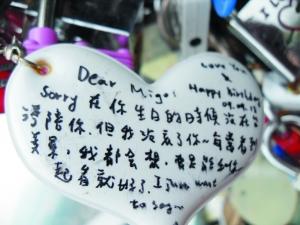 Dear Migo:
Sorry 在你生日的時候沒在台
灣陪你.但我沒忘了你~每當看到
美景,我都會想,要是能和你一
起看就好了. I just want
to say~
Love You
Happy birthday